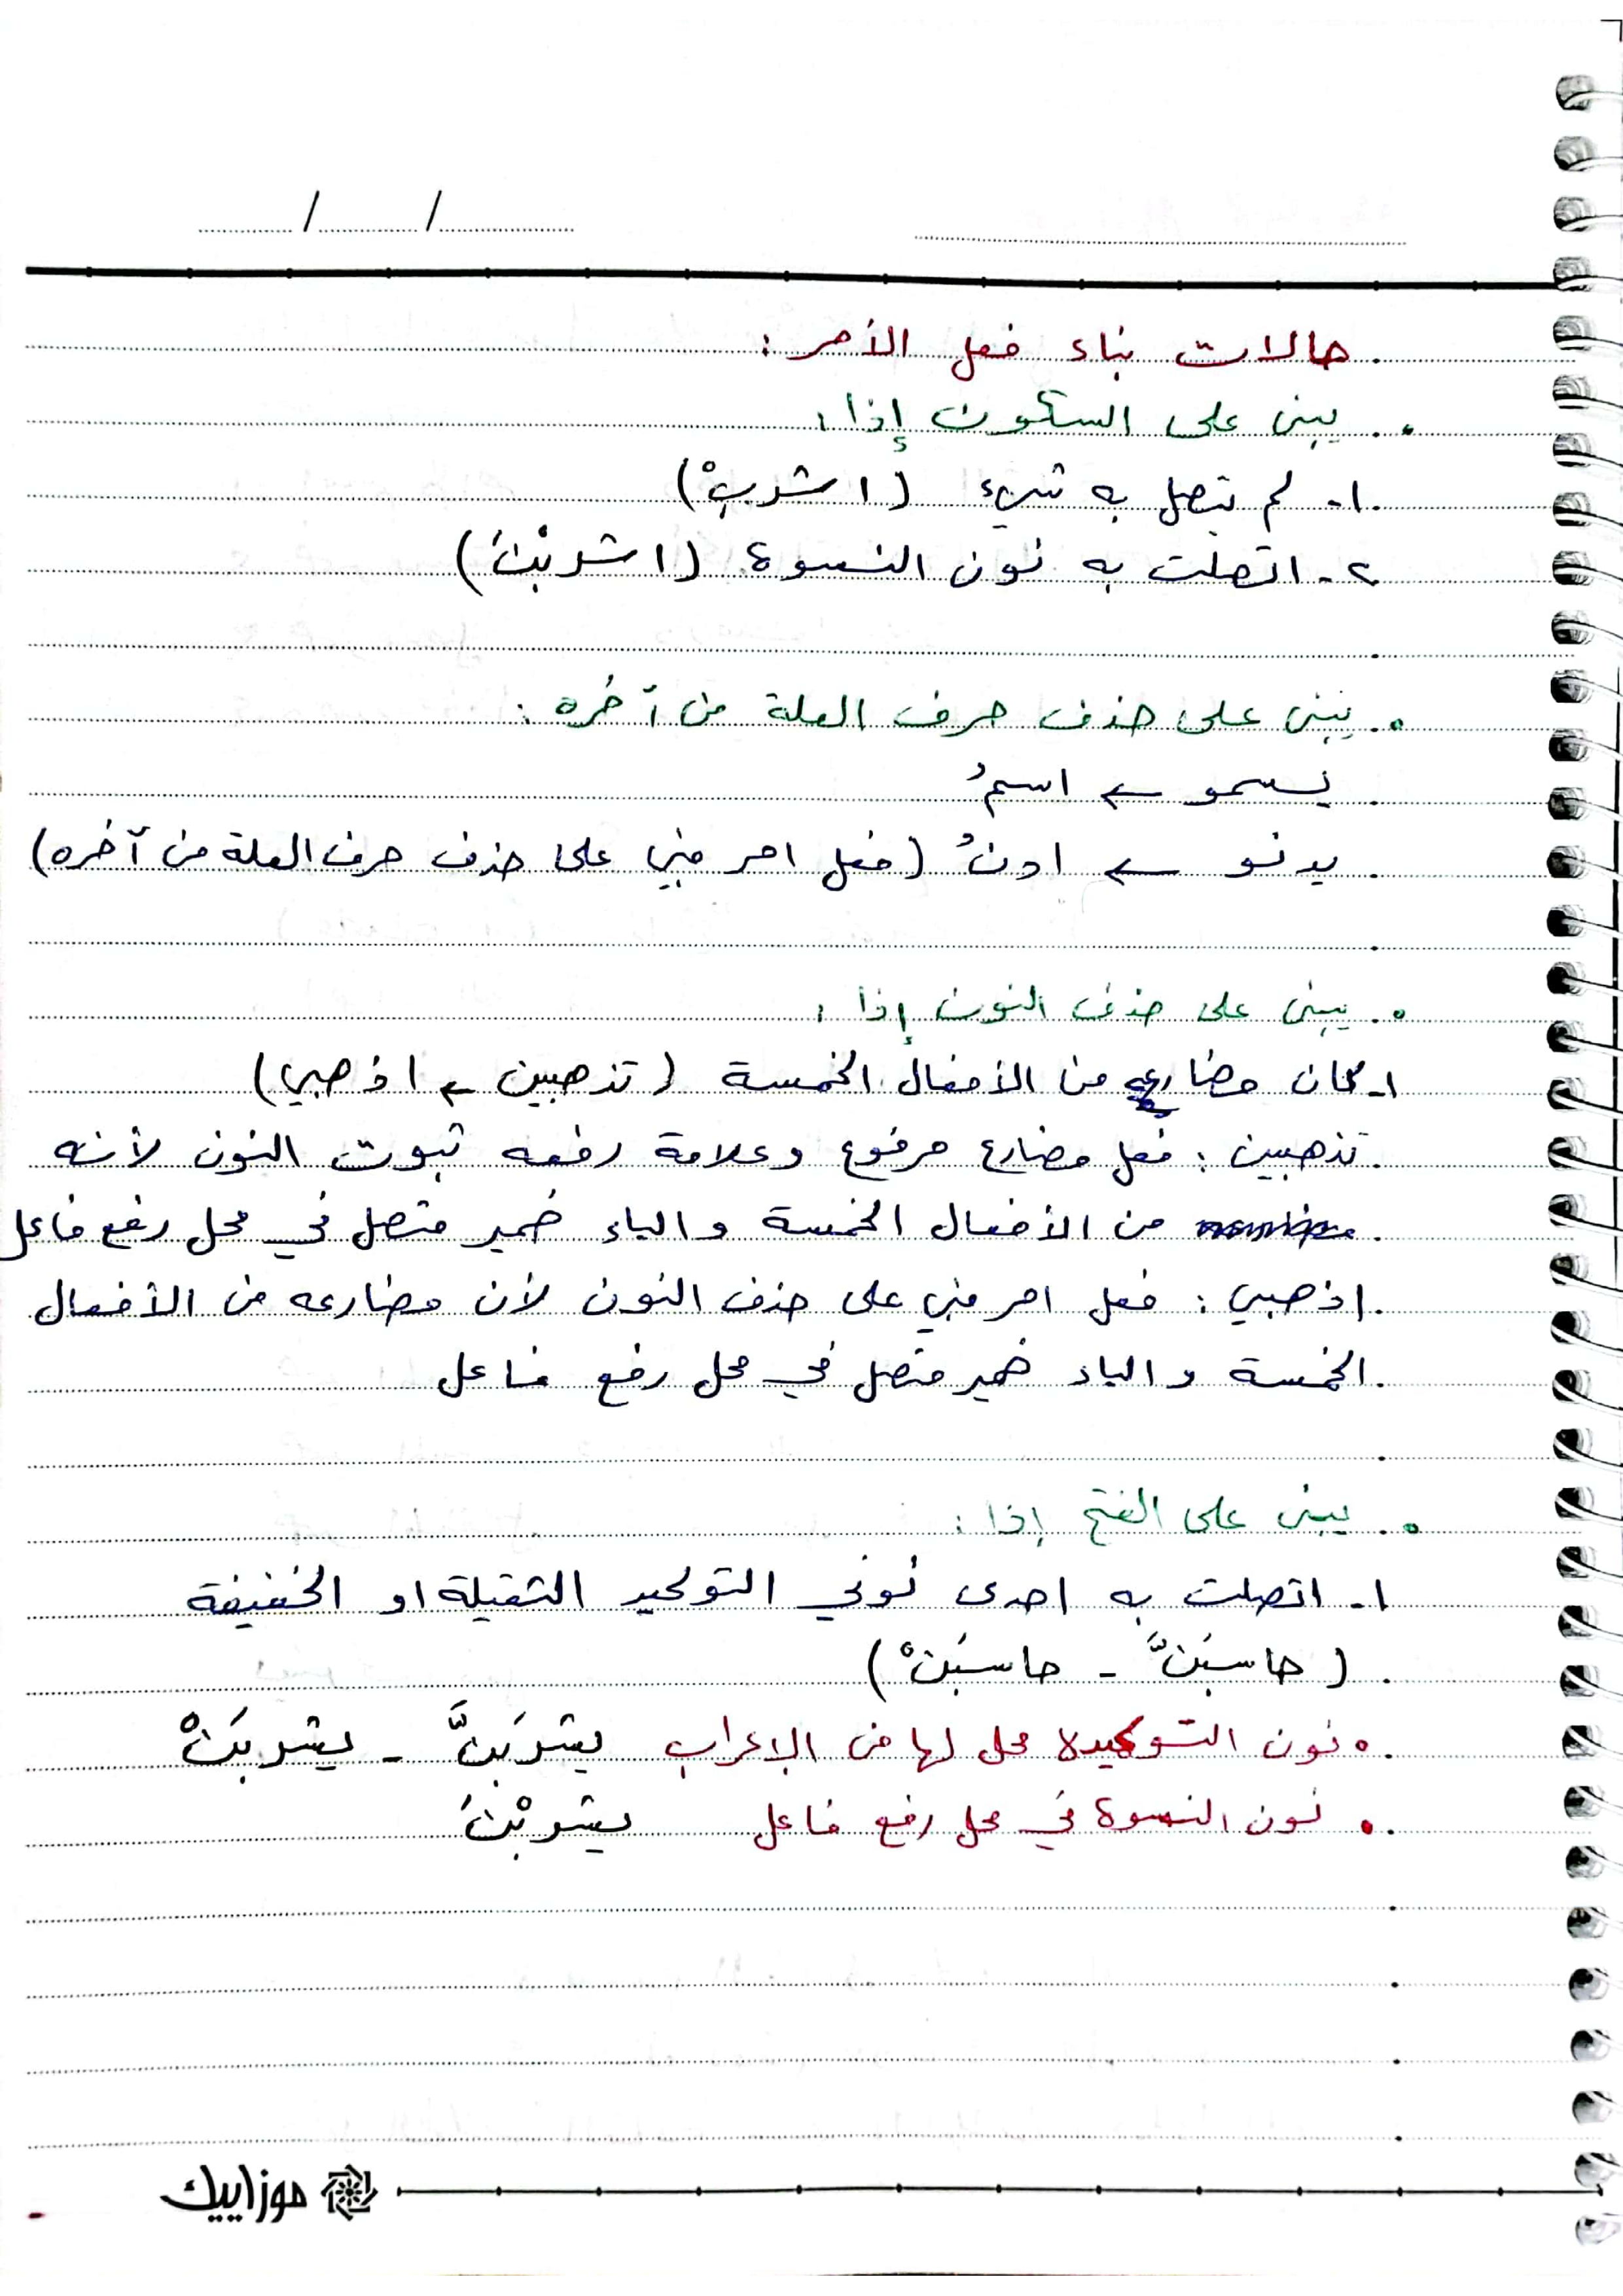 حالات بناء فعل الأمر :
• يبنى على السكون إذا :
١- لم يتصل به شيء (اشربْ)
٢- اتصلت به نون النسوة (اشربْنَ)
• يبنى على حذف حرف العلة من آخره :
يسمو ← اسمُ
يدنو ← ادنُ (فعل امر مبني على حذف حرف العلة من آخره)
• يبنى على حذف النون إذا :
١- كان مضارعه من الأفعال الخمسة (تذهبين ← اذهبي)
تذهبين : فعل مضارع مرفوع وعلامة رفعه ثبوت النون لأنه
من الأفعال الخمسة والياء ضمير متصل في محل رفع فاعل
اذهبي : فعل امر مبني على حذف النون لأن مضارعه من الأفعال
الخمسة والياء ضمير متصل في محل رفع فاعل
• يبنى على الفتح إذا :
١- اتصلت به احدى نوني التوكيد الثقيلة او الخفيفة
(حاسبَنَّ - حاسبَنْ)
• نون التوكيد لا محل لها من الإعراب يشربَنَّ - يشربَنْ
• نون النسوة في محل رفع فاعل يشربْنَ
موزاييك